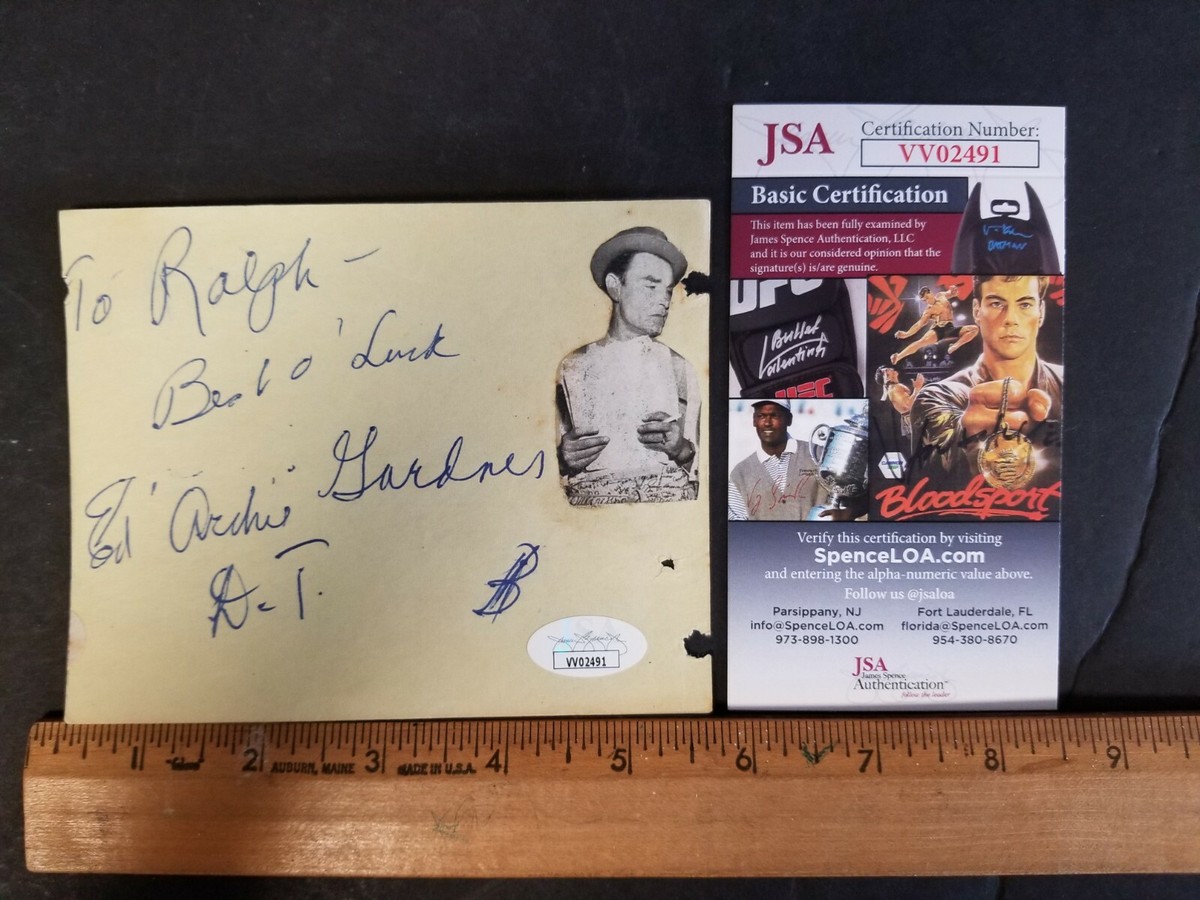 To Ralph -
Best o' Luck
Ed "Archie" Gardner
D.T.
VV02491
JSA
Certification Number:
VV02491
Basic Certification
This item has been fully examined by
James Spence Authentication, LLC
and it is our considered opinion that the
signature(s) is/are genuine.
UFC
UFC
Bloodsport
Verify this certification by visiting
SpenceLOA.com
and entering the alpha-numeric value above.
Follow us @jsaloa
Parsippany, NJ
info@SpenceLOA.com
973-898-1300
Fort Lauderdale, FL
florida@SpenceLOA.com
954-380-8670
JSA
James Spence
Authentication™
Follow the leader
1 2 3 4 5 6 7 8 9
AUBURN, MAINE MADE IN U.S.A.